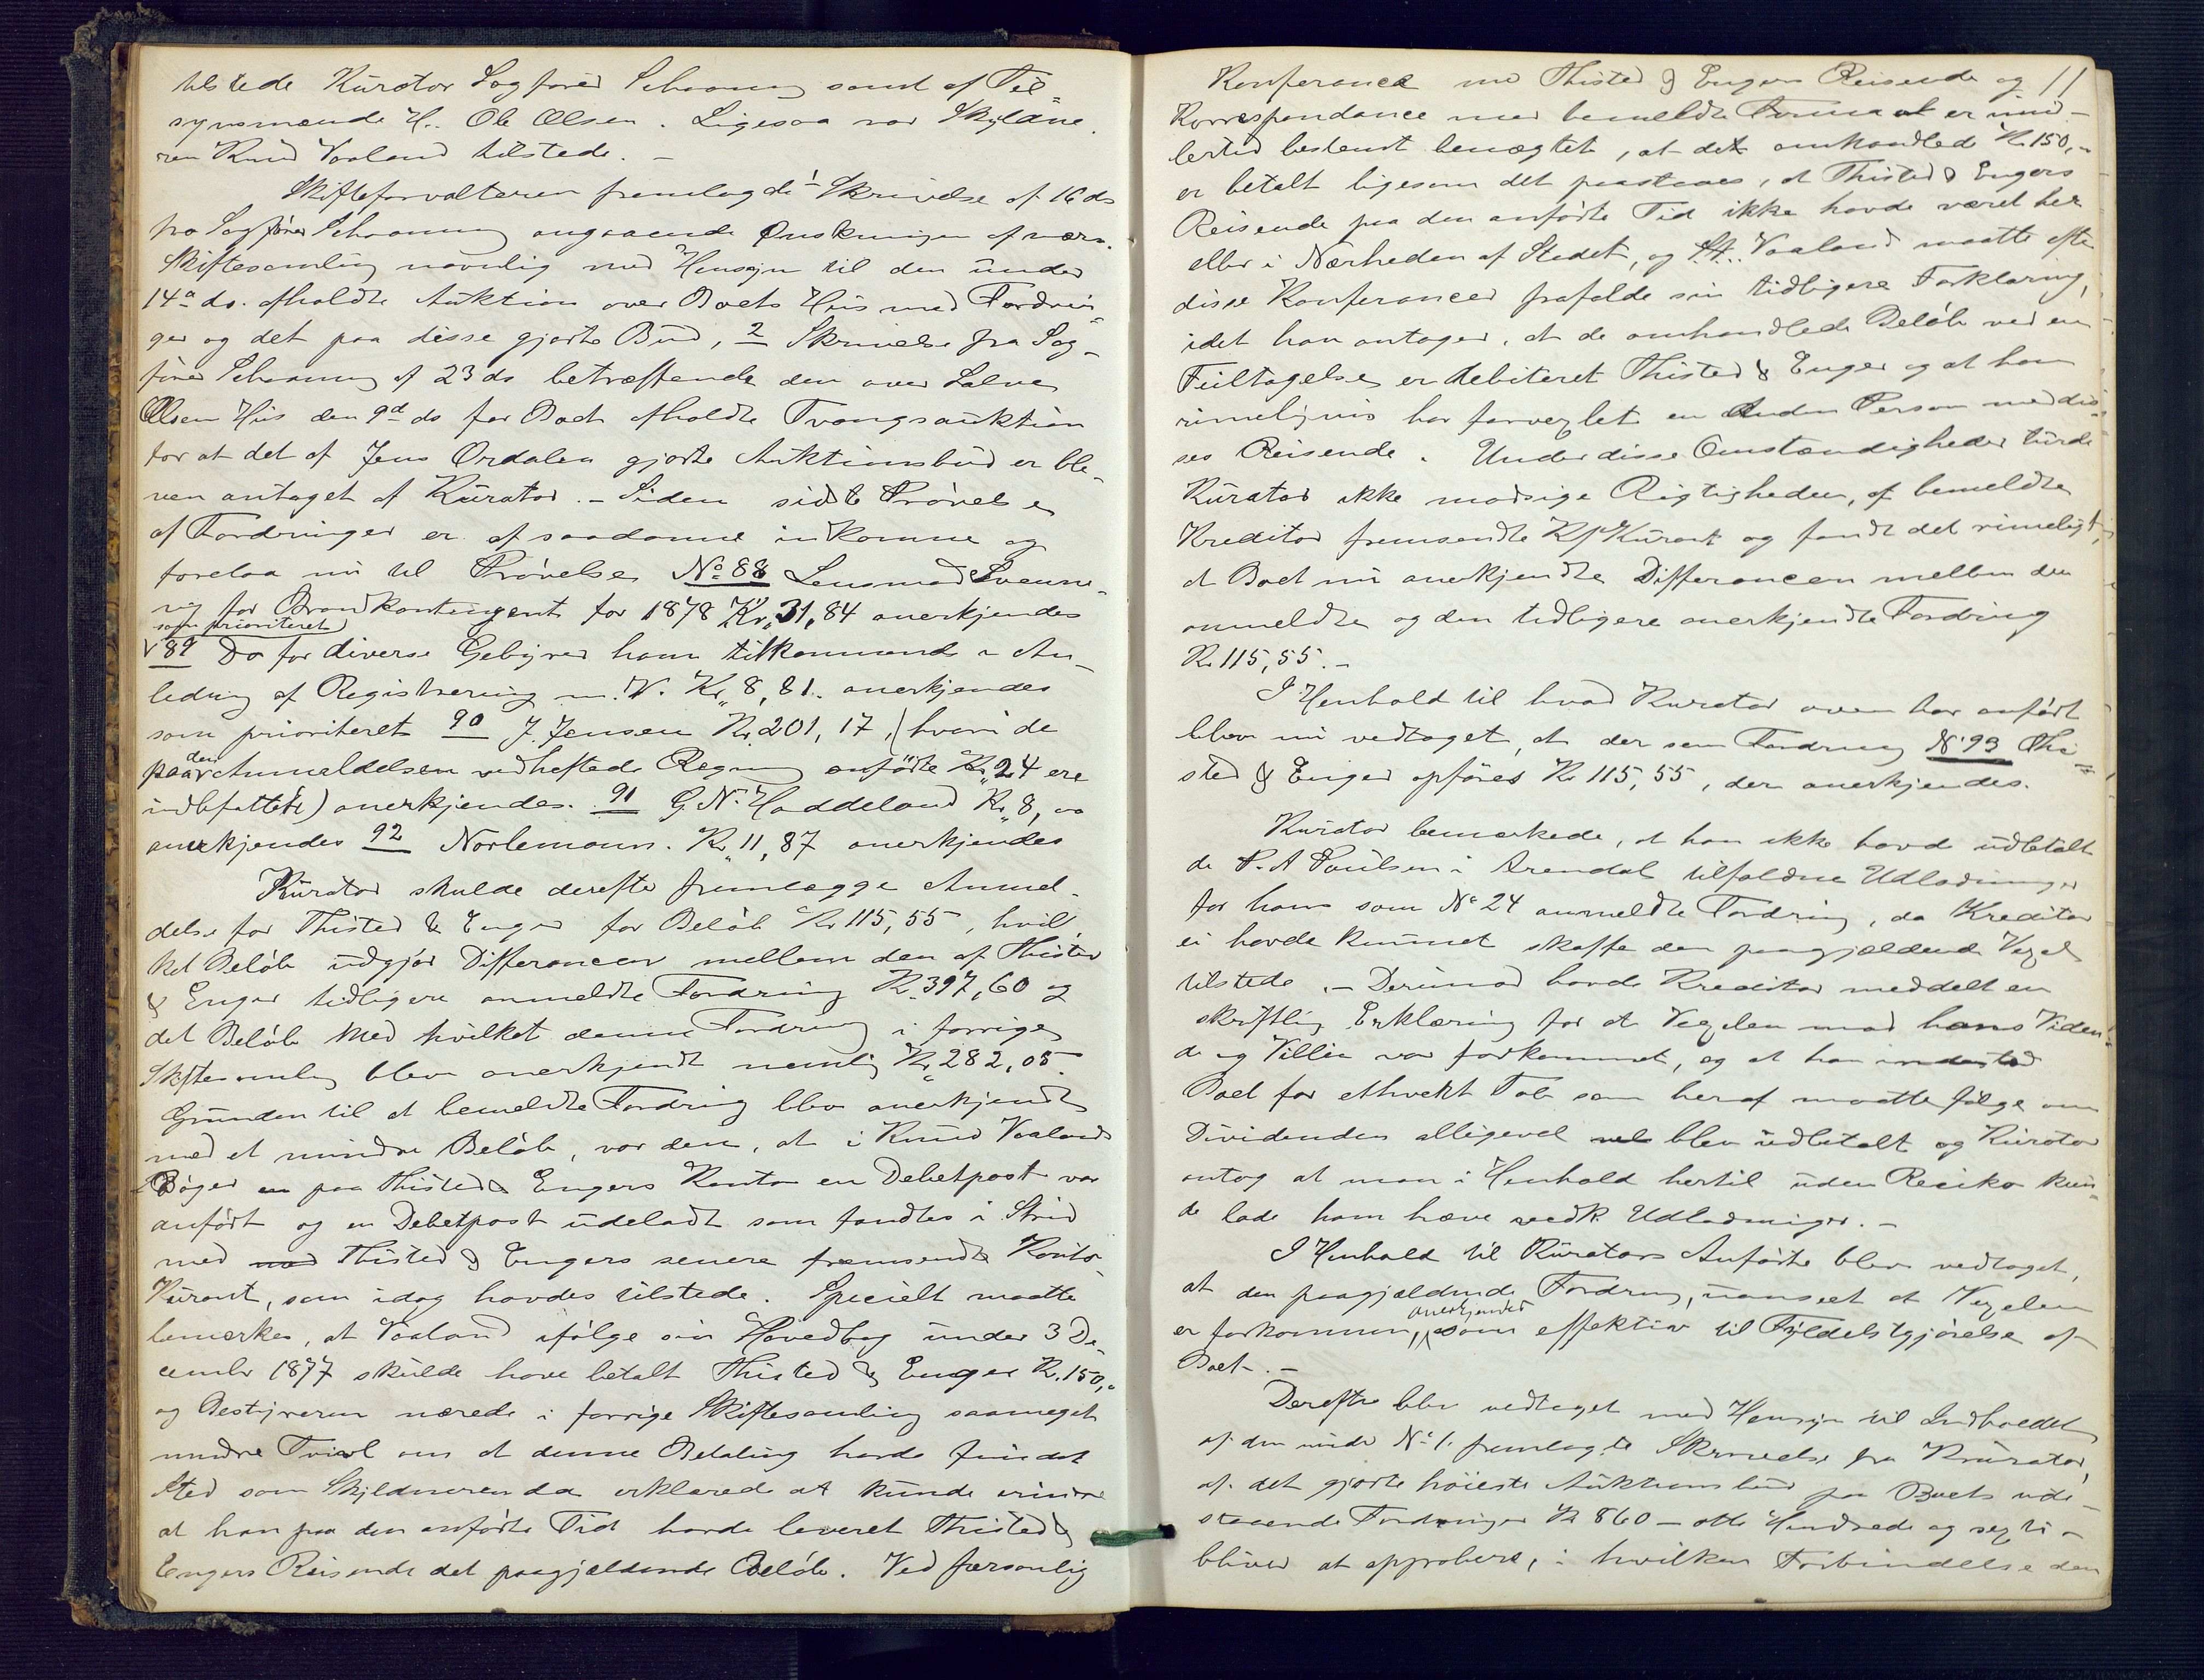 tilstede Kurator Sagfører Schaanng samt af Til-
synsmænde H. Ole Olsen. Ligesaa var Skyldne
ren Knud Vaaland tilstede. –
Skifteforvalteren fremlagde 1 Skrivelse af 16 ds
fra Sagfører Schaanng angaaende Ønskningen af nærv.
Skiftesamling navnlig med Hensyn til den under
14de ds. afholdte Auktion over Boets Hus med Fordrin-
ger og det paa disse gjorte Bud, 2 Skrivelse fra Sag-
fører Schaanng af 23 ds betræffende den over Salve
Olsens Hus den 9d ds for Boet afholdte Tvangsauktion
for at det af Jens Ordalen gjorte Auktionsbud er ble-
ven antaget af Kurator. – Siden sidste Prøvelse
af Fordringer er af saadanne indkomne og
forelaa nu til Prøvelse No 88 Lensmand Sveinn-
ng for Brandkontingent for 1878 Kr. 31,84 anerkjendes
som prioriteret
89 Do for diverse Gebyrer ham tilkommende i An-
ledning af Registrering m. V. Kr. 8,81. anerkjendes
som prioriteret 90 J. Jensen Kr. 201,17, (hvori de
paa den Anmeldelsen vedheftede Regning anførte Kr. 24 ere
indbefattede) anerkjendes. 91 G. N. Haddeland Kr. 8,00
anerkjendes 92 Norlemann. Kr. 11,87 anerkjendes
Kurator skulde derefter fremlægge Anmel-
delse for Thisted & Enger for Beløb Kr 115,55, hvil-
ket Beløb udgjør Differancen mellem den af Thisted
& Enger tidligere anmeldte Fordring Kr. 397,60 og
det Beløb med hvilket denne Fordring i forrige
Skiftesamling blev anerkjendt nemlig Kr. 282,05.
Grunden til at bemeldte Fordring blev anerkjendt
med et mindre Beløb, var den, at i Knud Vaalands
Bøger en paa Thisted & Engers Konto en Debetpost var
anført og en Debetpost udeladt som fandtes i Strid
med med Thisted & Engers senere fremsendte Konto-
Kurant, som idag havdes tilstede. Specielt maatte
bemærkes, at Vaaland ifølge sin Hovedbog under 3 De-
cember 1877 skulde have betalt Thisted & Enger Kr. 150,"
og Bestyreren nærede i forrige Skiftesamling saameget
mindre Tvivl om at denne Betaling havde fundet
Sted som Skyldneren da erklærede at kunde erindre
at han paa den anførte Tid havde leveret Thisted &
Engers Reisende det paagjældende Beløb. Ved personlig
11
Konferance med Thisted & Engers Reisende og
Korrespondance med bemeldte Firma at er imid-
lertid bestemt benægtet, at det omhandlede Kr. 150,"
er betalt ligesom det paastaaes, at Thisted & Engers
Reisende paa den anførte Tid ikke havde været her
eller i Nærheden af Stedet, og Vaaland maatte efter
disse Konferancer frafalde sin tidligere Forklaring,
idet han antager, at de omhandlede Beløb ved en
Feiltagelse er debiteret Thisted & Enger og at han
rimeligvis har forvexlet en Anden Person med dis-
ses Reisende. Under disse Omstændigheder turde
Kurator ikke modsige Rigtigheden, af bemeldte
Kreditor fremsendte K/Kurant og fandt det rimeligt,
at Boet nu anerkjendte Differancen mellem den
anmeldte og den tidligere anerkjendte Fordring
Kr. 115,55. –
I Henhold til hvad Kurator oven har anført
blev nu vedtaget, at der som Fordring No 93 Thi-
sted & Enger opføres Kr. 115,55, der anerkjendes.
Kurator bemærkede, at han ikke havde udbetalt
de P. A Poulsen i Arendal tilfaldne Udlodninger
for hans som No 24 anmeldte Fordring, da Kreditor
ei havde kunnet skaffe den paagjældende Vexel
tilstede. – Derimod havde Kreditor meddelt en
skriftlig Erklæring for at Vexelen mod hans Viden-
de og Villie var forkommet, og at han indestod
Boet for ethvert Tab som heraf maatte følge om
Dividenden alligevel blev udbetalt og Kurator
antog at man i Henhold hertil uden Risiko kun-
de lade ham hæve vedk. Udlodninger. –
I Henhold til Kurators Anførte blev vedtaget,
at den paagjældende Fordring, uanseet at Vexelen
er forkommen, anerkjendes som effektiv til Fyldestgjørelse af
Boet. –
Derefter blev vedtaget med Hensyn til Indholdet
af den under No 1. fremlagte Skrivelse fra Kurator,
at det gjorte høieste Auktionsbud paa Boets ude-
staaende Fordringer Kr 860 – otte Hundrede og sexti –
bliver at approbere, i hvilken Forbindelse den